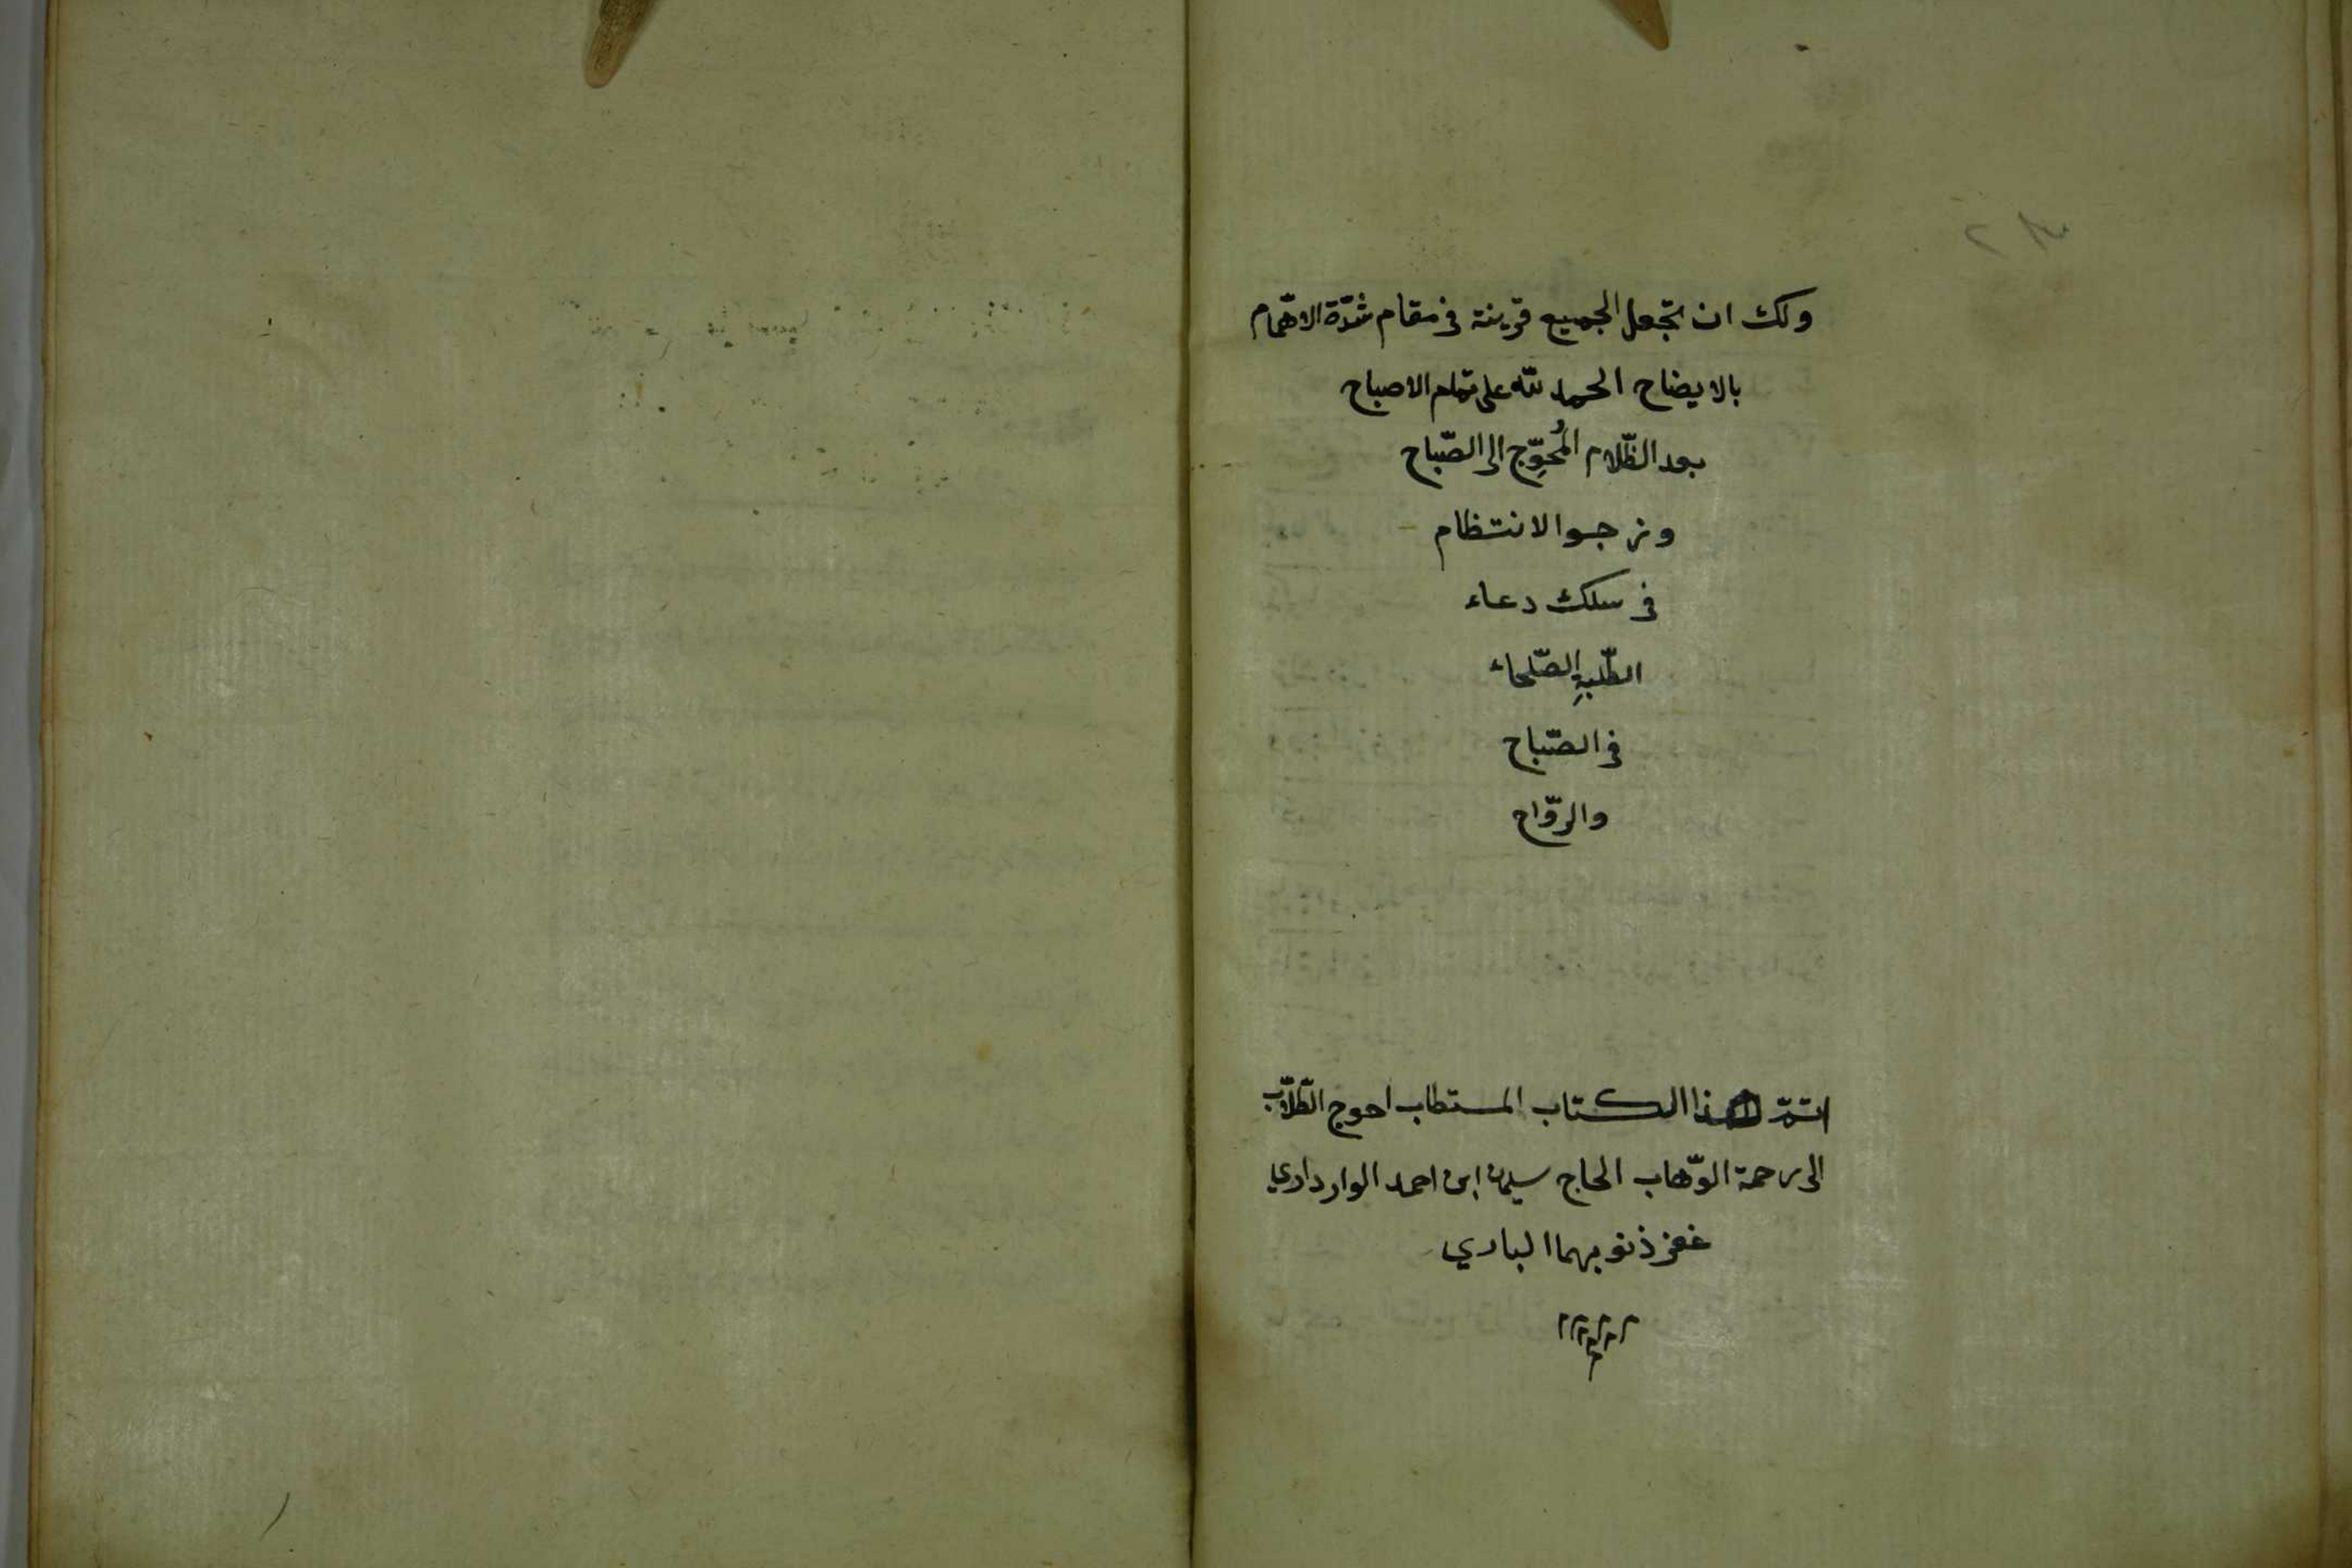 ولك ان تجعل الجميع قرينة فى مقام شدّة الاهتمام
بالايضاح الحمد لله على تمام الاصباح
بعد الظّلام المُحوِّج الى الصّباح
ونرجوا الانتظام
فى سلك دعاء
الطّلبةِ الصّلحاء
فى الصّباح
والرّواح
هذا الكتاب المستطاب احوج الطّلاّب
الى رحمة الوّهاب الحاج سليمن ابن احمد الوارداري
غفر ذنوبهما الباري